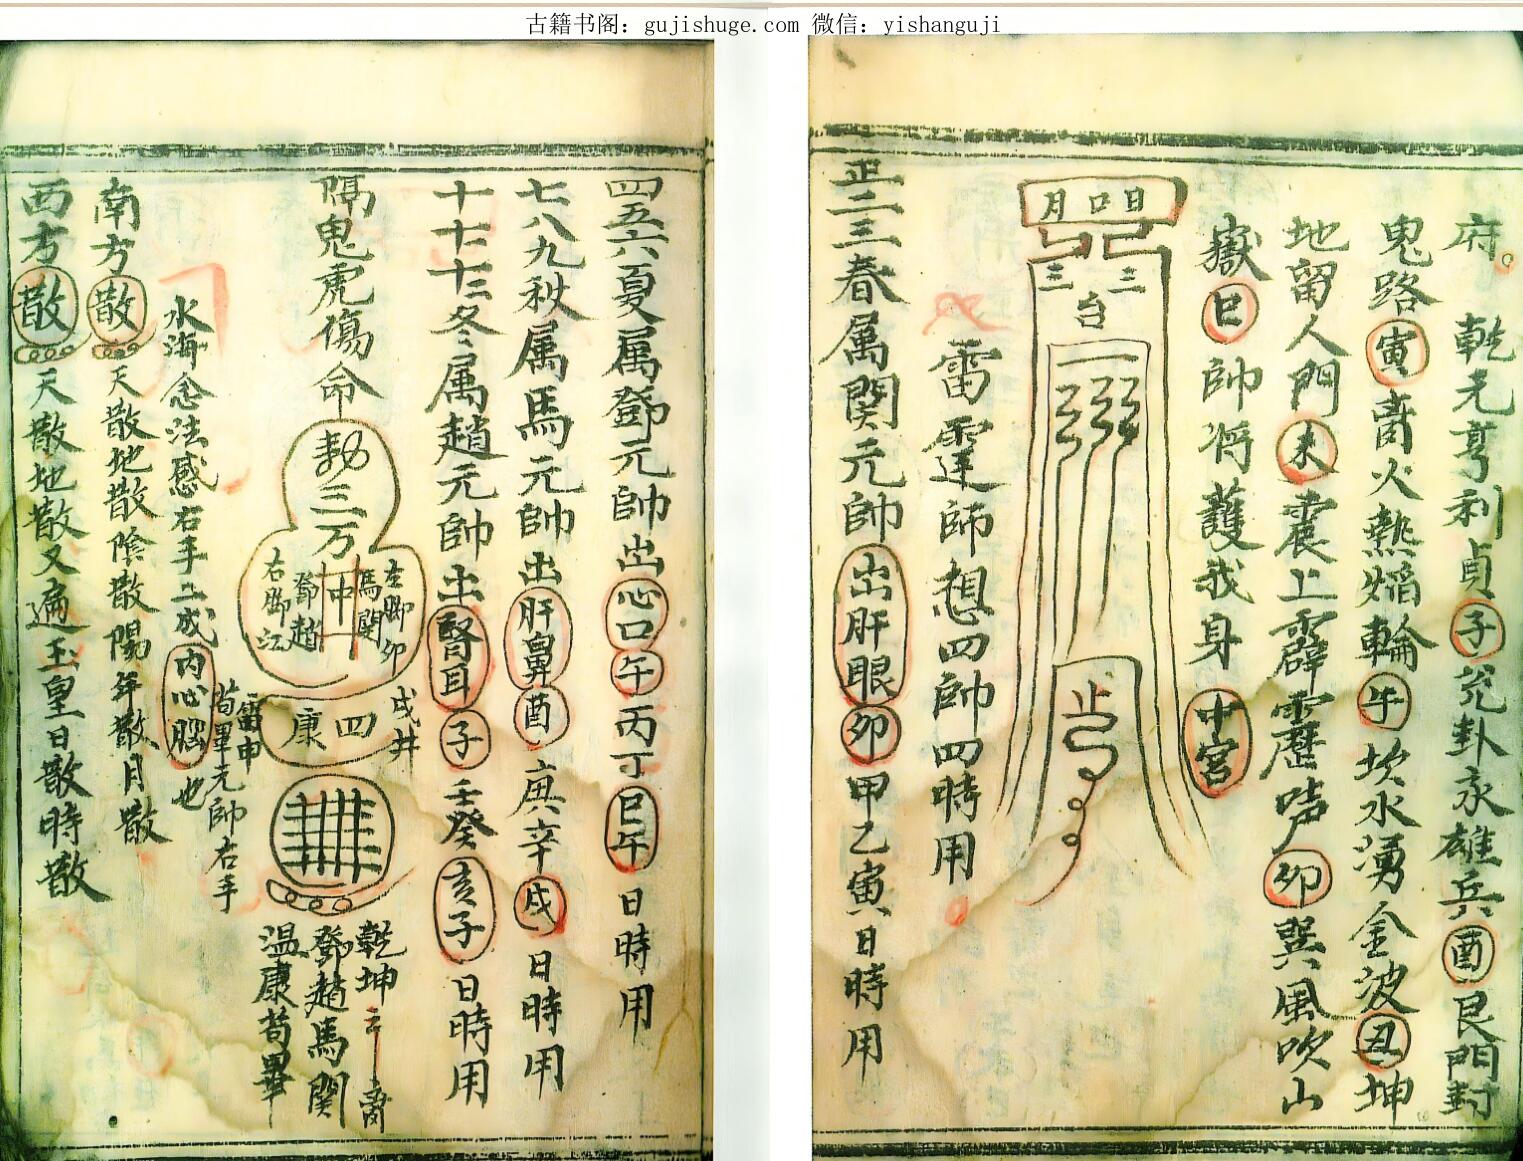 古籍书阁：gujishuge.com 微信：yishanguji
府。乾元亨利貞子兌卦永雄兵酉艮門封
鬼路寅离火熱焰輪午坎水湧金波丑坤
地留人門未震上霹靂吽声卯巽風吹山
嶽巳帥将護我身中宫
日口月
三台三
雷霆師想四帥四時用
正二三春属関元帥出肝眼卯甲乙寅日時用
四五六夏属鄧元帥出心口午丙丁巳午日時用
七八九秋属馬元帥出肝鼻酉庚辛戌日時用
十十一十二冬属趙元帥出腎耳子壬癸亥子日時用
隔鬼虎傷命
勅三万
中
左脚卯
馬関
鄧趙
右脚江
四康
戌井
雷申
苟畢元帥右手
乾坤
鄧趙馬関
温康苟畢
水海念法感右手上成内心腦也
南方散天散地散陰散陽年散月散
西方散天散地散又遍玉皇日散時散